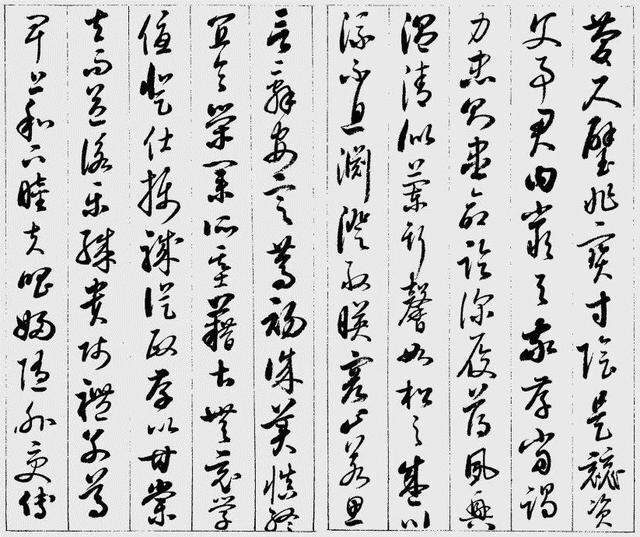 慶尺璧非寶寸陰是競資
父事君曰嚴與敬孝當竭
力忠則盡命臨深履薄夙興
溫清似蘭斯馨如松之盛川
流不息淵澄取暎容止若思
言辭安定篤初誠美慎終
宜令榮業所基藉甚無竟學
優登仕攝職從政存以甘棠
去而益詠樂殊貴賤禮別尊
卑上和下睦夫唱婦隨外受傅